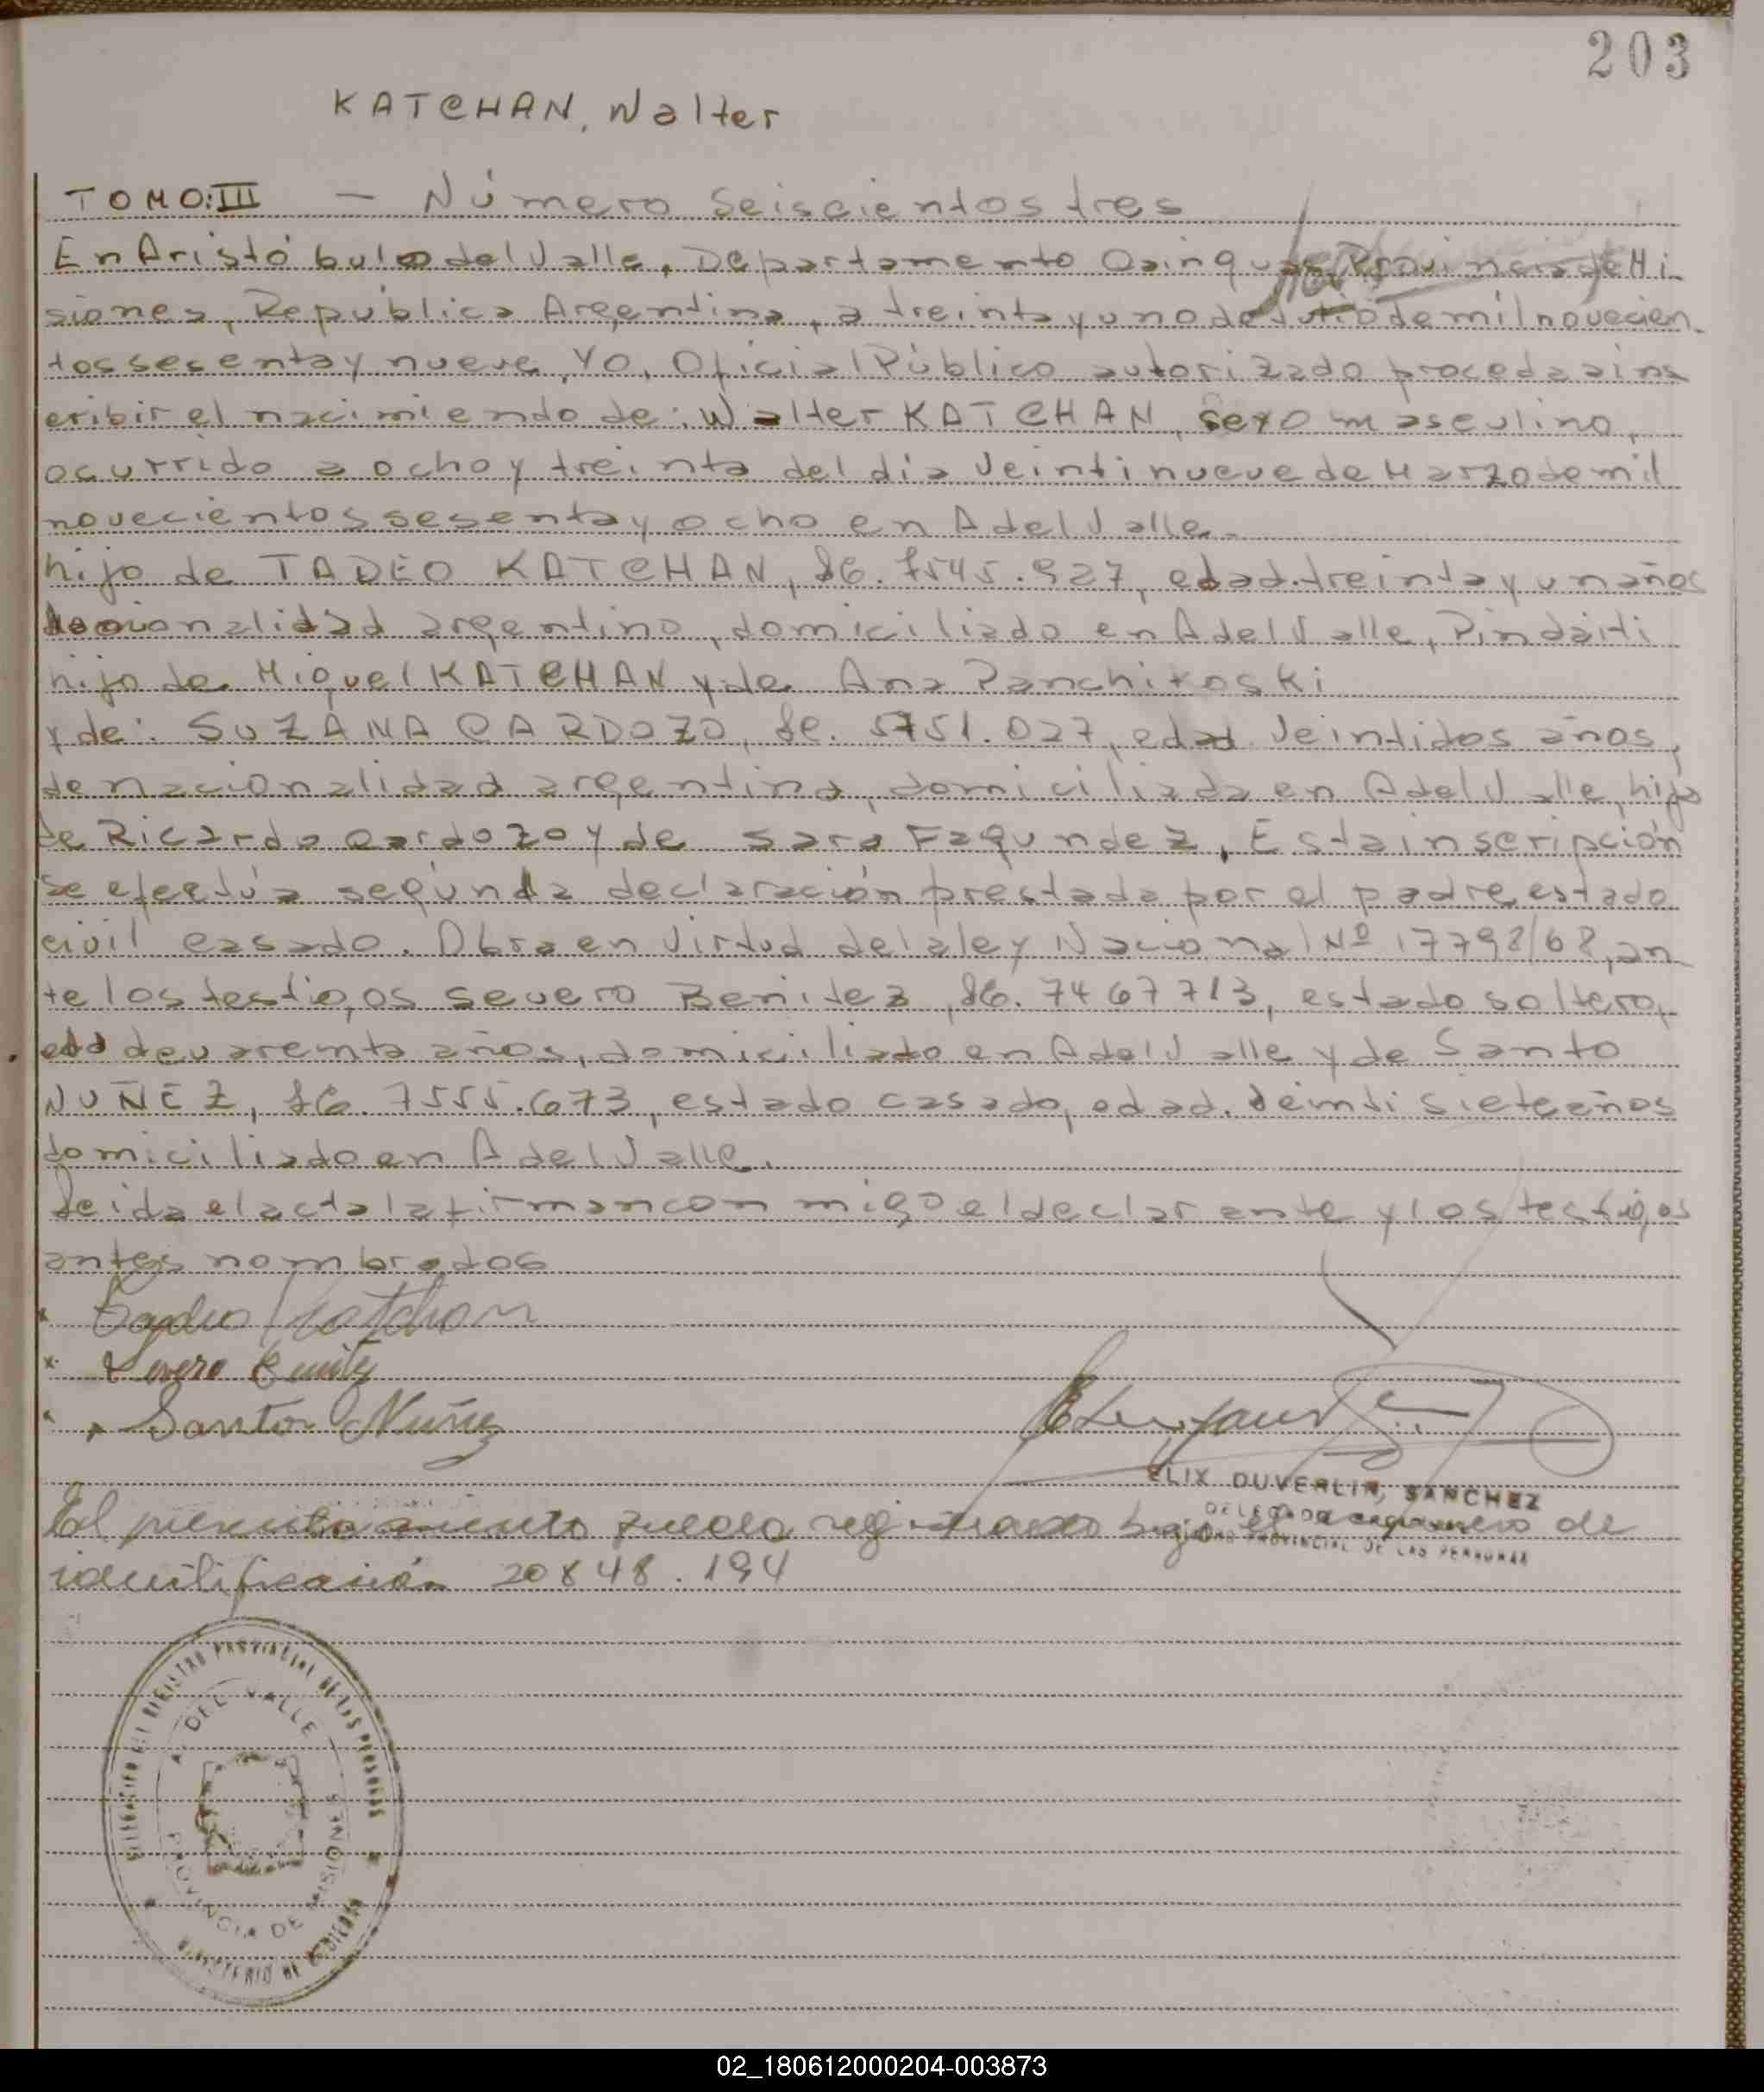 203
KATCHAN, Walter
TOMO:III — Número Seiscientos tres
En Aristóbulo del Valle, Departamento Cainguas, Provincia de Mi
siones, República Argentina, a treinta y uno de Julio de mil novecien
tos sesenta y nueve, Yo, Oficial Público autorizado procedo a ins
cribir el nacimiendo de: Walter KATCHAN, sexo masculino,
ocurrido a ocho y treinta del día Veintinueve de Marzo de mil
novecientos sesenta y ocho en A del Valle.
hijo de TADEO KATCHAN, LE. 7545.927, edad. treinta y un años
nacionalidad argentino, domiciliado en A del Valle, Pindaiti
hijo de Miguel KATCHAN y de Ana Panchiroski
y de: SUZANA CARDOZO, LC. 5751.027, edad Veintidos años,
de nacionalidad argentina, domiciliada en A del Valle, hija
de Ricardo Cardozo y de Sara Fagundez, Esta inscripción
se efectúa segúnda declaración prestada por el padre, estado
civil casado. Obra en Virtud de la ley Nacional Nº 17798/68, an
te los testigos Severo Benitez, LE. 7467713, estado soltero,
domiciliado en A del Valle y de Santo
NUÑEZ, LE. 7555.673, estado casado, edad. Veintisiete años
domiciliado en A del Valle.
Leida el acta la firman con migo el declarante y los testigos
antes nombrados
Tadeo Katchan
Severo Benitez
Santo Nuñez
ELIX DUVERLIN, SANCHEZ
DELEGADO
PROVINCIAL DE LAS PERSONAS
El presente queda registrado bajo el de
identificación 20848.194
DELEGACION DEL REGISTRO PROVINCIAL DE LAS PERSONAS
A. DEL VALLE
PROVINCIA DE MISIONES
MINISTERIO DE GOBIERNO
02_180612000204-003873